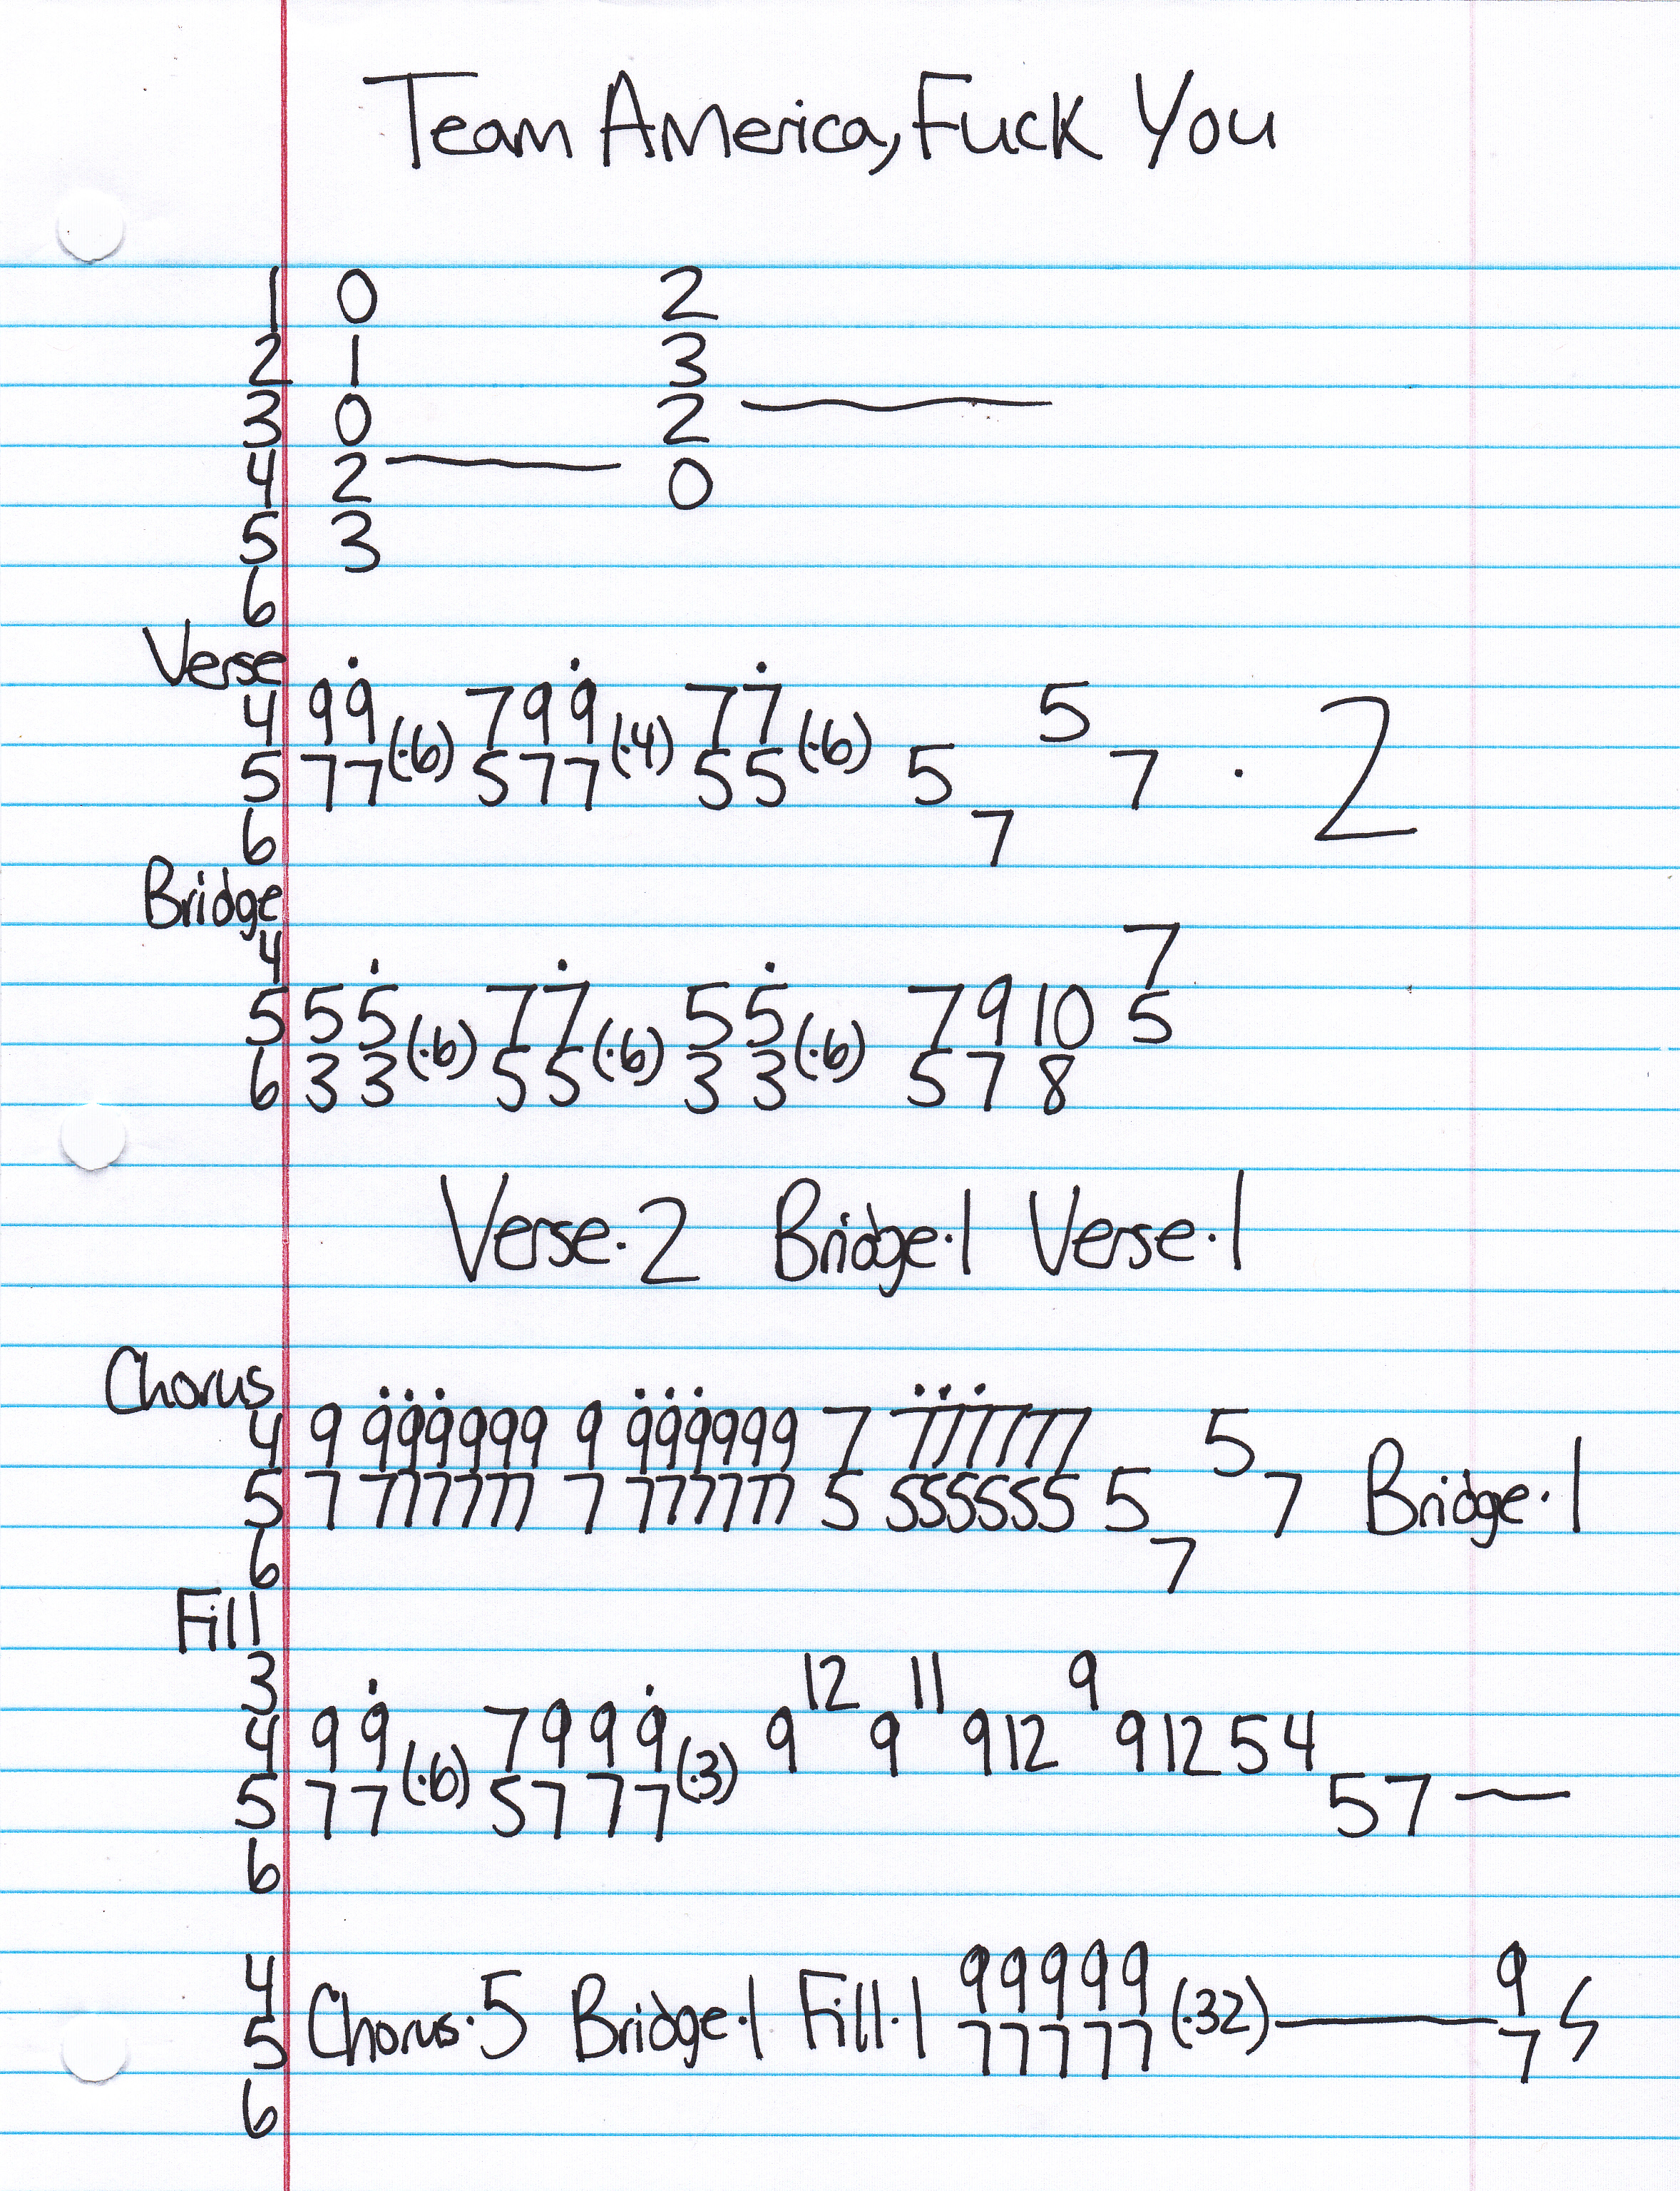 Team America, Fuck You
1 0 2
2 1 3
3 0 2
4 2 0
5 3
6
Verse
4 99 799 77 5
5 77 (·6) 577 (·4) 55 (·6) 5 7 · 2
6 7
Bridge
4 7
5 55 77 55 7 9 10 5
6 33 (·6) 55 (·6) 33 (·6) 5 7 8
Verse·2 Bridge·1 Verse·1
Chorus
4 9 999999 9 999999 7 777777 5
5 7 777777 7 777777 5 555555 5 7 Bridge·1
6 7
Fill
3 12 11 9
4 9 9 7 9 9 9 9 9 9 12 9 12 5 4
5 7 7 (·6) 5 7 7 7 (·3) 5 7
6
4 99999 9
5 Chorus·5 Bridge·1 Fill·1 77777 (·32) 7
6